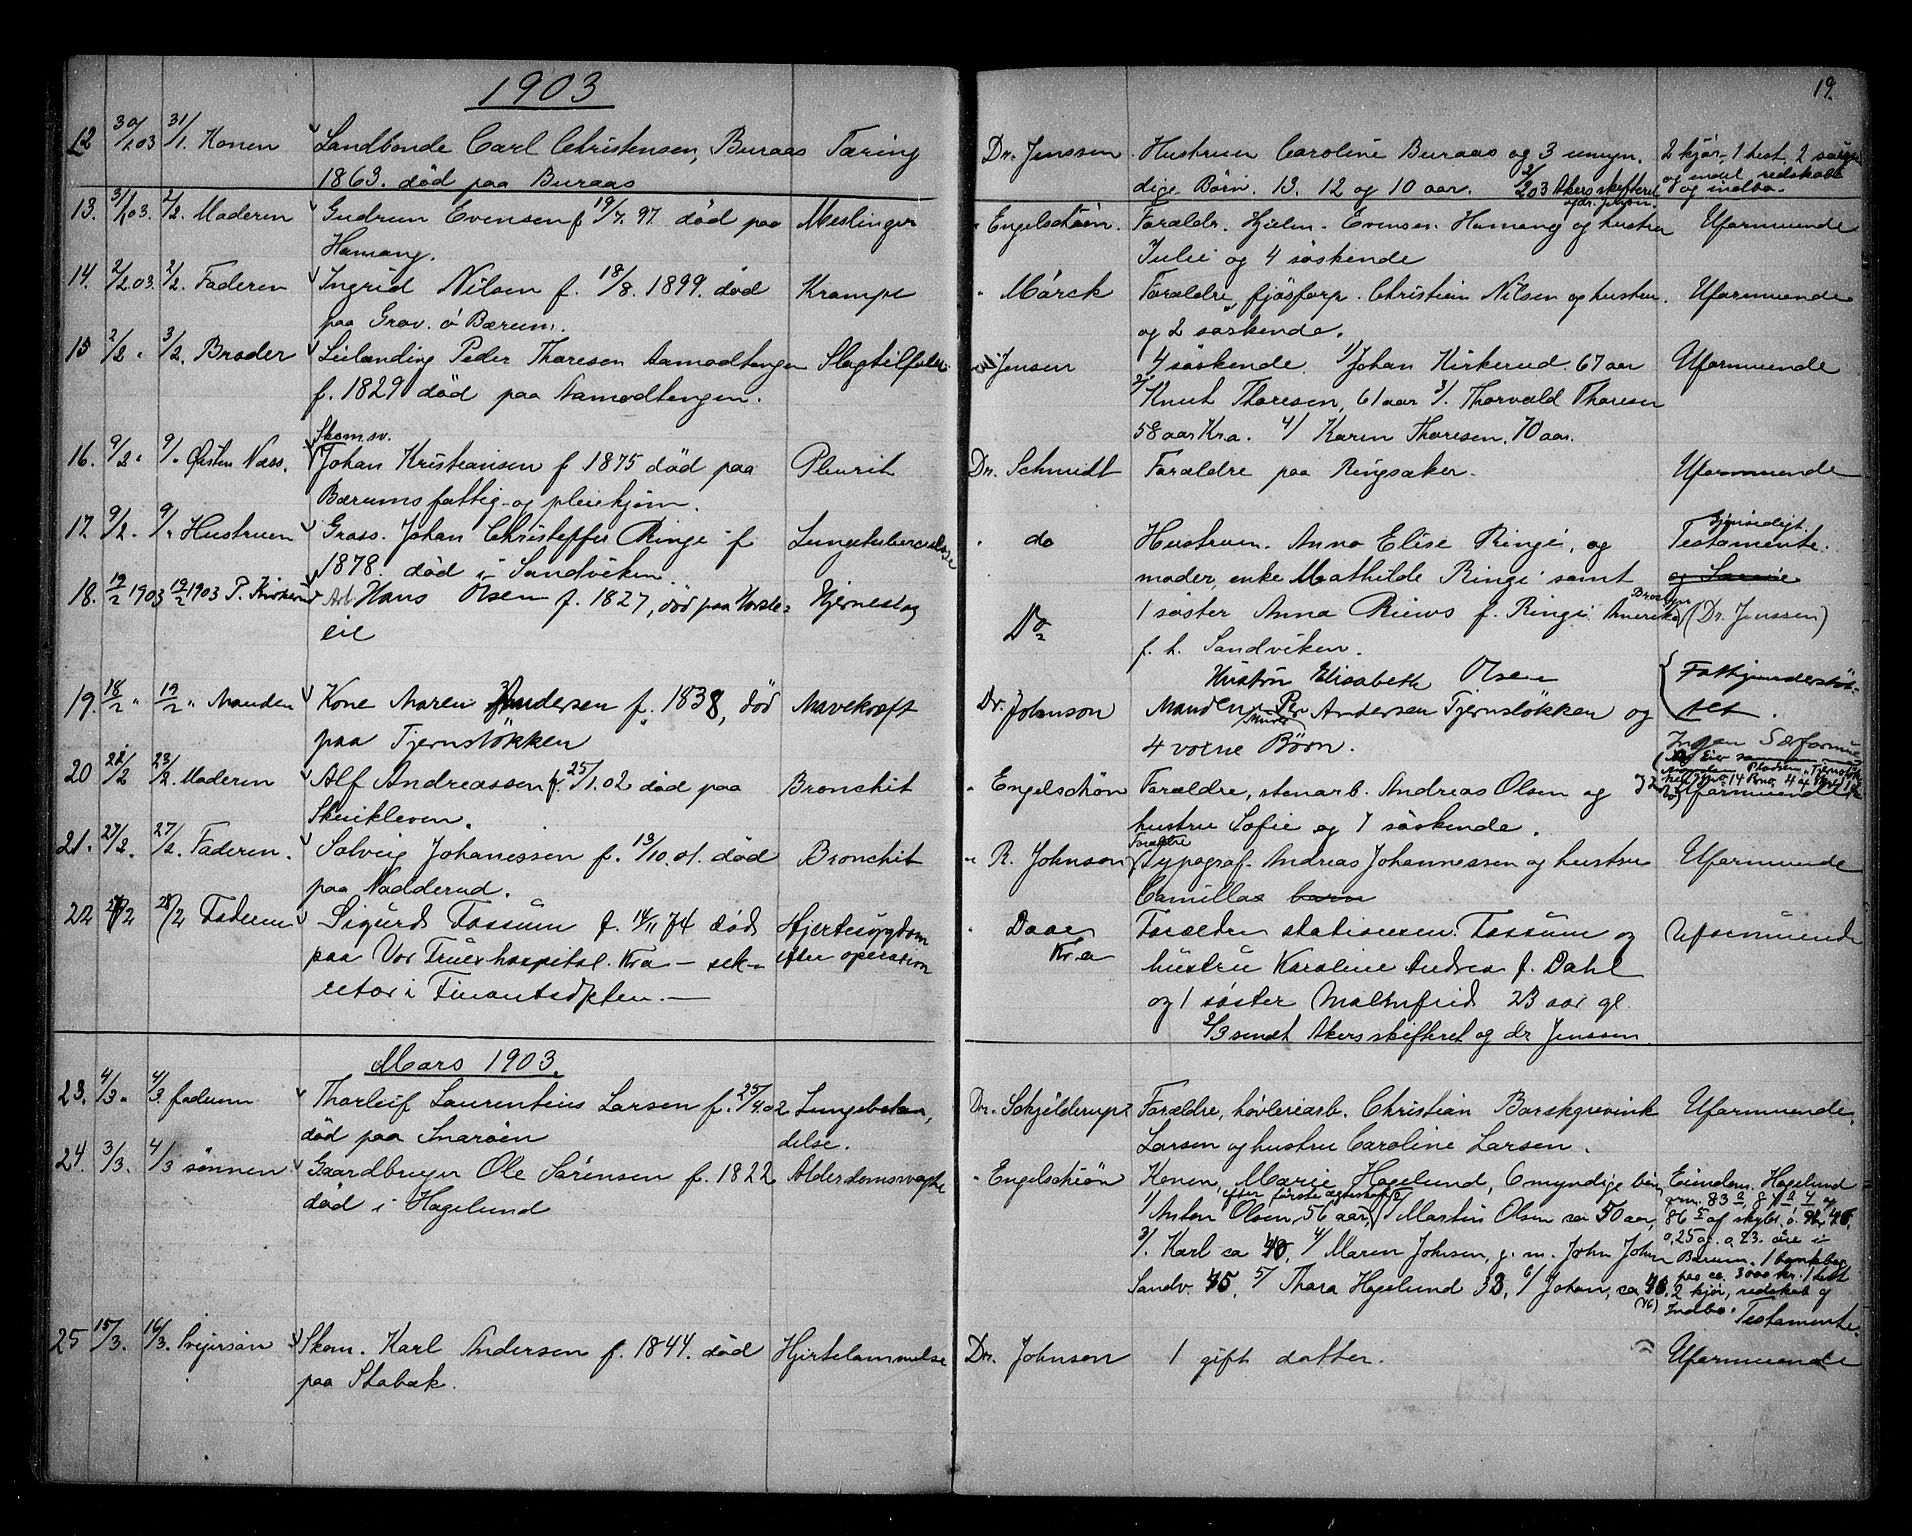 1903
12 30/1 03 31/1. Konen Landbonde Carl Christensen, Buraas Tæring
1863. død paa Buraas
13. 31/1 03. 2/2. Moderen Gudrun Evensen f 19/7. 97. død paa Meslinger
Hamang.
14. 2/2 03. 2/2. Faderen Ingrid Nilsen f. 18/8. 1899. død Krampe
paa Grav. ö Bærum.
15 2/2 " 3/2. Broder Leilænding Peder Thoresen Aamodtangen Slagtilfælde
f. 1829 død paa Aamodtangen.
Skomsv.
16. 9/2 " 9/" Østen Næss. Johan Kristiansen f 1875 død paa Pleurit
Bærums fattig- og pleiehjem.
17 9/2. 9/" Hustruen Gross. Johan Christoffer Ringi f Lungetuberculose
1878. død i Sandviken
18. 19/2 1903 19/2 1903 P. Kirkerud Arb. Hans Olsen f. 1827, død paa Horste= Hjerneslag
eie
19. 18/2 " 19/2 " Manden Kone Maren Andersen f. 1838, død Mavekræft
paa Tjernsløkken
20 22/2 23/2. Moderen Alf Andreassen f. 25/1. 02 død paa Bronchit
Skuikleven.
21. 27/2. 27/2. Faderen. Solveig Johanessen f. 13/10. 01. død Bronchit
paa Nadderud.
22 27/2 28/2 Faderen Sigurd Fossum f. 14/11 74 død Hjertesygdom
paa Vor Frues hospital. Kra — sek- efter operation
retær i Finantsdpten. —
Mars 1903.
23. 4/3. " 4/3. faderen Thorleif Laurentius Larsen f. 25/4 02 Lungebetæn,
død paa Snarøen delse.
24. 3/3. 4/3 sønnen Gaardbruger Ole Sørensen f. 1822 Alderdomsvagthe
død i Hagelund
25 15/3. 16/3. Svigersøn Skom. Karl Andersen f. 1844. død Hjertelammelse
paa Stabæk.
19.
Dr. Jenssen Hustruen Caroline Buraas og 3 umyn. 2 kjør, 1 hest, 2
dige Børn. 13. 12 og 10 aar. 2/2 03 Akers skifteret og endel redskab
og indbo.
" Engelschiøn. Forældr. Hjelm. Evensen Hamang og hustru Uformuende
Julie og 4 søskende
" Mörck Forældre, fjøsforp. Christian Nilsen og hustru. Uformuende
og 2 søskende.
Jensen 4 søskende. 1/ Johan Kirkerud. 67 aar Uformuende
2/ Knut Thoresen, 61 aar 3/. Thorvald Thoresen
58 aar Kra. 4/ Karen Thoresen. 70 aar.
Dr. Schmidt Forældre paa Ringsaker. Uformuende
" do Hustruen. Anna Elise Ringi, og Gjensidigt Testamente.
moder, enke Mathilde Ringi samt
Do 1 søster Anna Riews f. Ringi. Amerika (Dr. Jenssen)
f. h. Sandviken.
Hustru Elisabeth Olsen Fattigunderstøt-
tet.
Dr. Johnson Manden Per Andersen Tjernsløkken og
4 voxne Børn. Ingen Særformue
" Engelschiøn Forældre, stenarb. Andreas Olsen og Uformuende
hustru Sofie og 7 søskende.
Forældre
" R. Johnson Typograf. Andreas Johannessen og hustru Uformuende
Camilla barn
" Daae Forældre stationsm. Fossum og Uformuende
Kra hustru Karoline Andrea f. Dahl
og 1 søster Malmfrid 23 aar gl.
2/3 sendt Akers skifteret og dr Jenssen
Dr. Schjelderup Forældre, høvleriarb. Christian Borchgrevink Uformuende.
Larsen og hustru Caroline Larsen.
" Engelschiøn Konen, Marie Hagelund, 6 myndige børn, Eiendom. Hagelund
efter første ægteskab
1/ Anton Olsen, 56 aar, 2/ Martin Olsen ca 50 aar,
3/. Karl ca 40, 4/ Maren Johnsen, g. m. John John Bærum. 1 bankbog
Sandv. 45, 5/ Thora Hagelund 33, 6/ Johan, ca 46. paa ca. 3000 kr. 1 hest
2 kjør, redskab og
Indbo. Testamente.
Dr. Johnson 1 gift datter. Uformuende